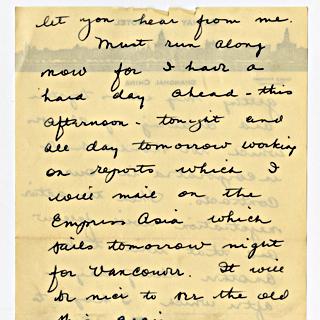 let you hear from me.
Must run along
now for I have a
hard day ahead - this
afternoon - tonight and
all day tomorrow working
on reports which I
will mail on the
Empress Asia which
sails tomorrow night
for Vancouver. It will
be nice to see the old